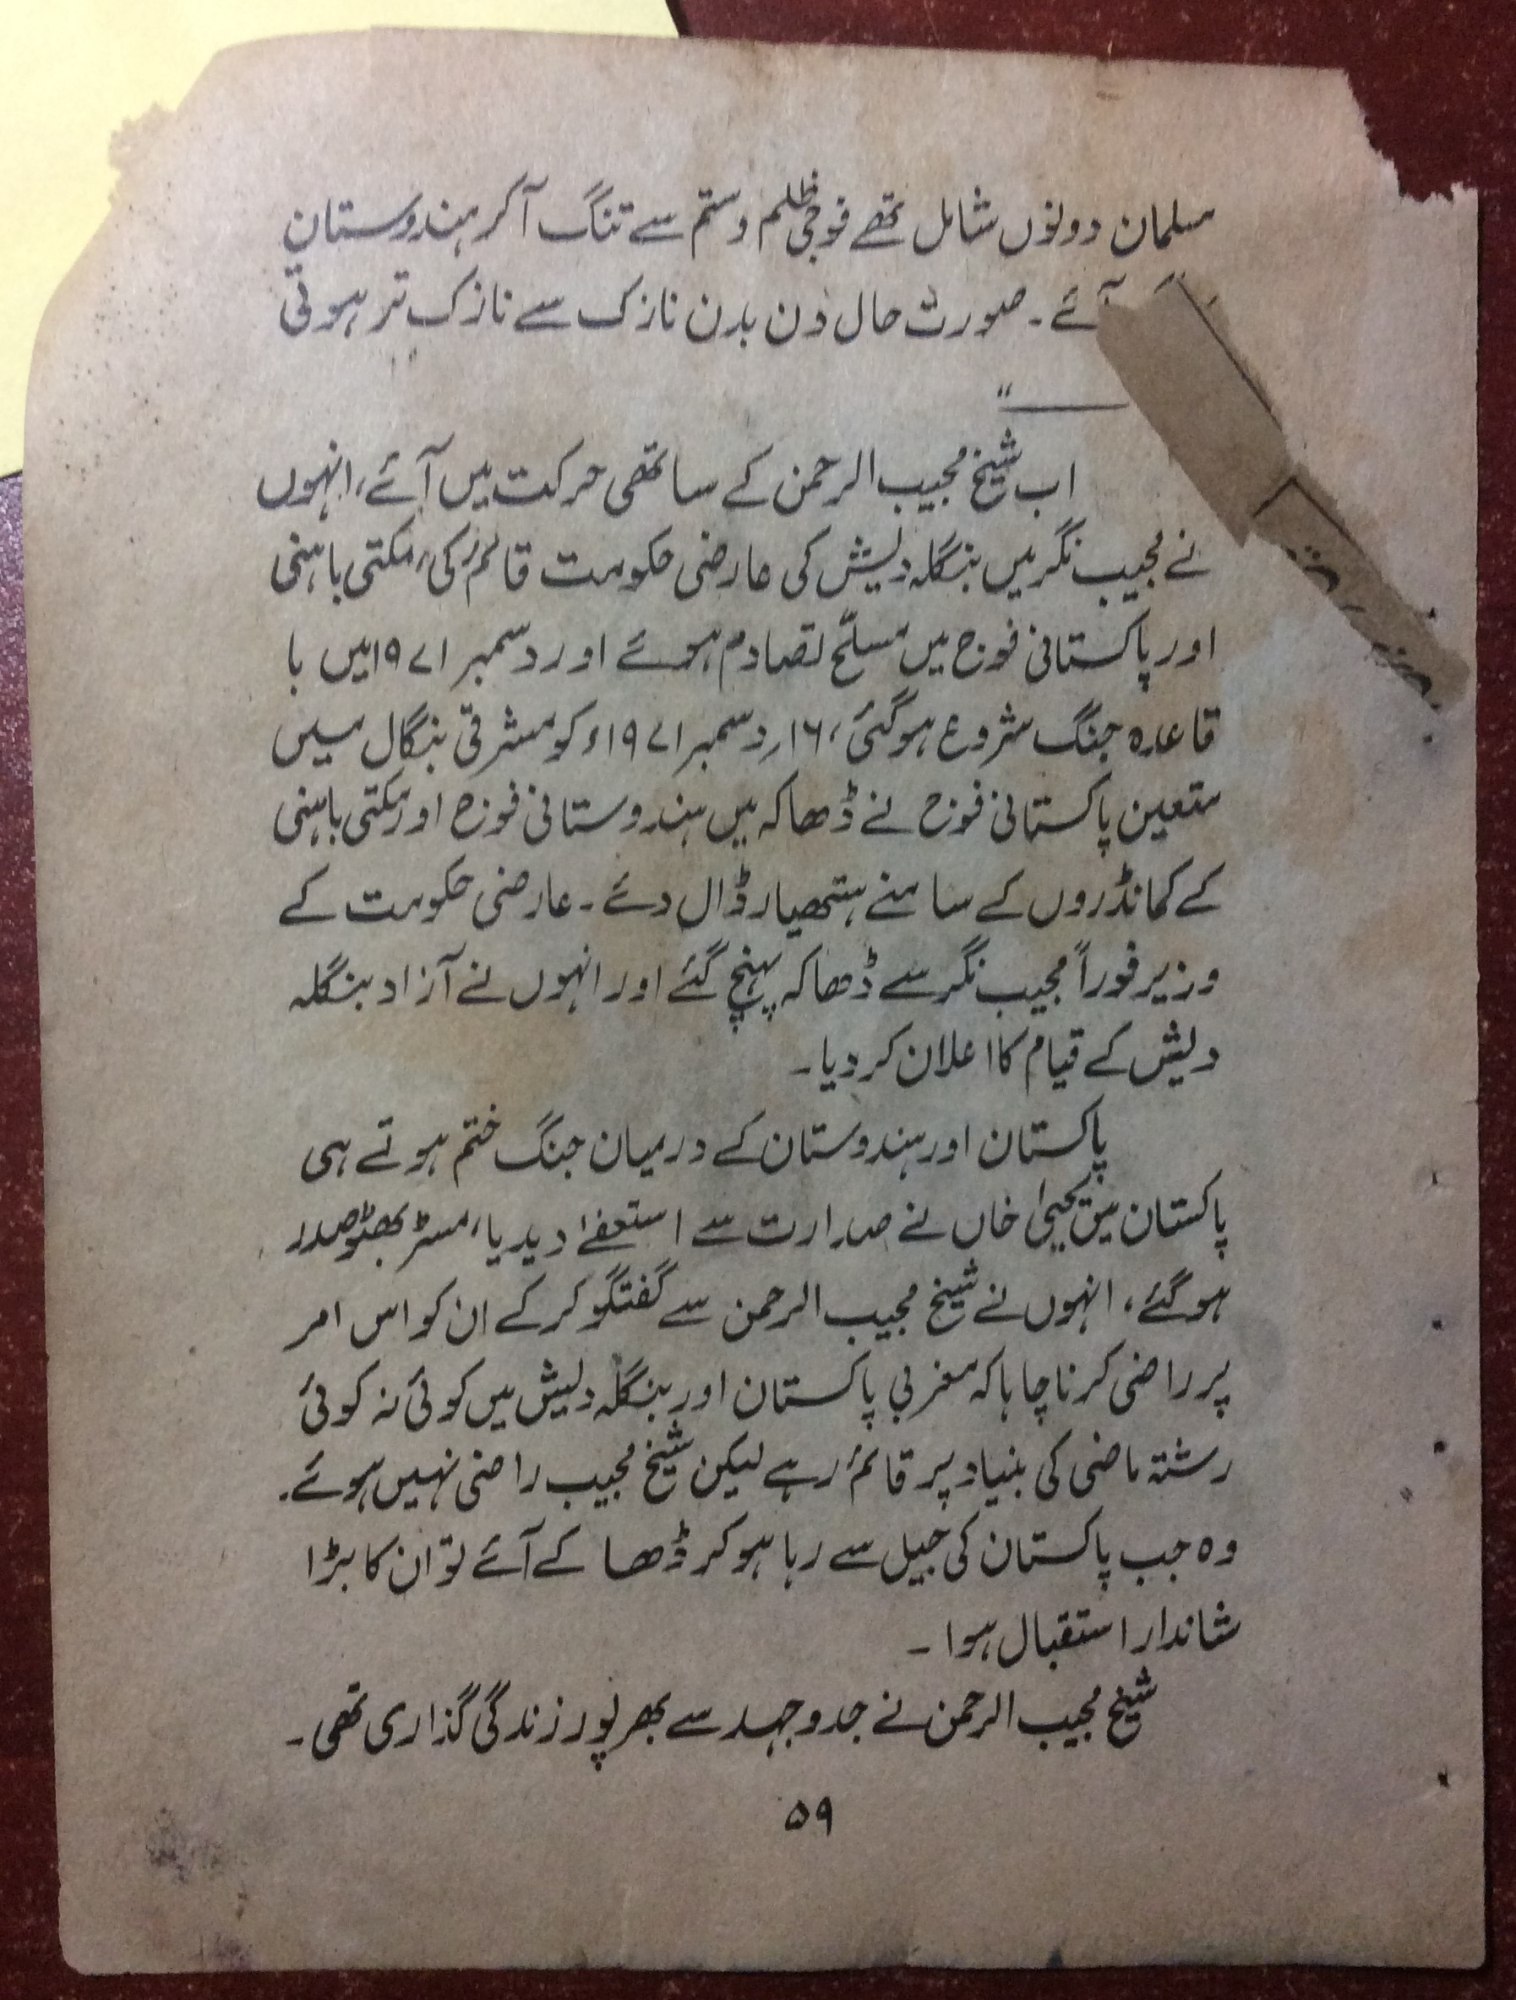 مسلمان دونوں شامل تھے فوجی ظلم و ستم سے تنگ آکر ہندوستان
آئے۔ صورت حال دن بدن نازک سے نازک تر ہوتی
"
اب شیخ مجیب الرحمن کے ساتھی حرکت میں آئے، انہوں
نے مجیب نگر میں بنگلہ دیش کی عارضی حکومت قائم کی، مکتی باہنی
اور پاکستانی فوج میں مسلّح تصادم ہوئے اور دسمبر ۱۹۷۱ میں با
قاعدہ جنگ شروع ہوگئی، ۱۶؍دسمبر ۱۹۷۱ء کو مشرقی بنگال میں
متعین پاکستانی فوج نے ڈھاکہ میں ہندوستانی فوج اور مکتی باہنی
کے کمانڈروں کے سامنے ہتھیار ڈال دئے۔ عارضی حکومت کے
وزیر فوراً مجیب نگر سے ڈھاکہ پہنچ گئے اور انہوں نے آزاد بنگلہ
دیش کے قیام کا اعلان کر دیا۔
پاکستان اور ہندوستان کے درمیان جنگ ختم ہوتے ہی
پاکستان میں یحییٰ خاں نے صدارت سے استعفےٰ دیدیا، مسٹر بھٹو صدر
ہوگئے، انہوں نے شیخ مجیب الرحمن سے گفتگو کرکے ان کو اس امر
پر راضی کرنا چاہا کہ مغربی پاکستان اور بنگلہ دیش میں کوئی نہ کوئی
رشتہ ماضی کی بنیاد پر قائم رہے لیکن شیخ مجیب راضی نہیں ہوئے۔
وہ جب پاکستان کی جیل سے رہا ہوکر ڈھاکے آئے تو ان کا بڑا
شاندار استقبال ہوا۔
شیخ مجیب الرحمن نے جدوجہد سے بھرپور زندگی گذاری تھی۔
۵۹